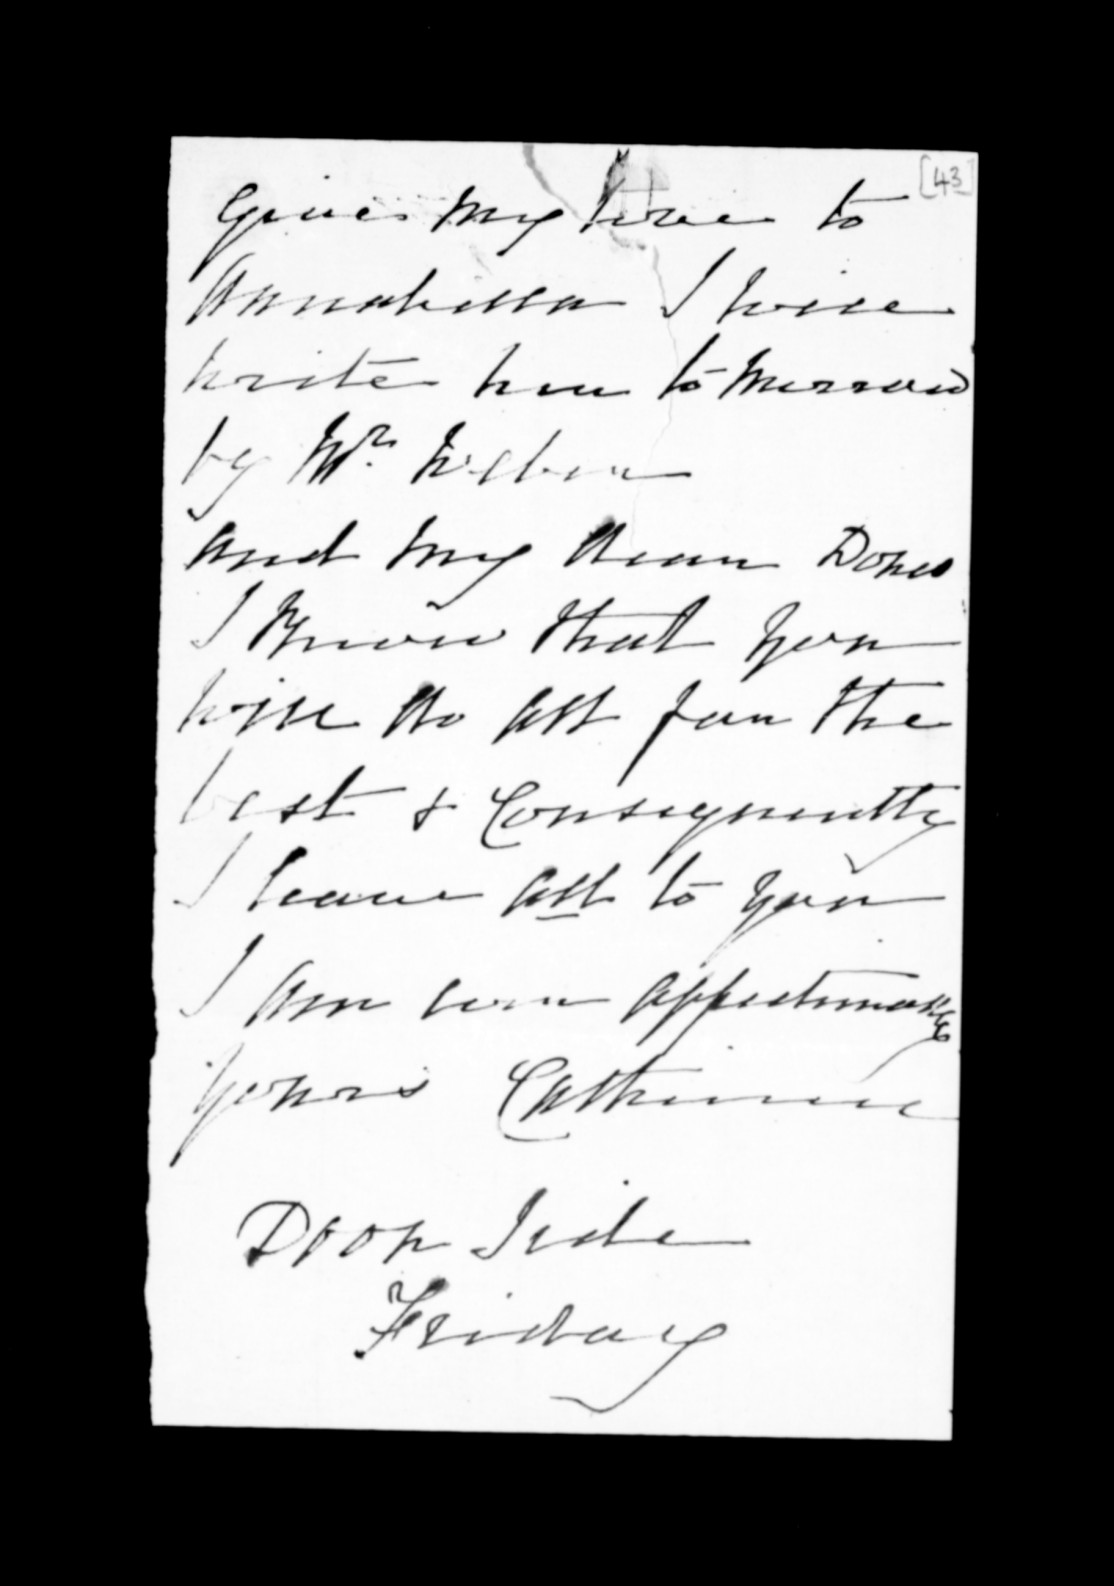 [43]
Give my love to
Annabella I will
write her to morrow
by Mr. Weber
and my dear Dona
I know that you
will do all for the
best & Consequently
I leave all to you
I am ever affectionately
yours Catherine
Door Side
Friday